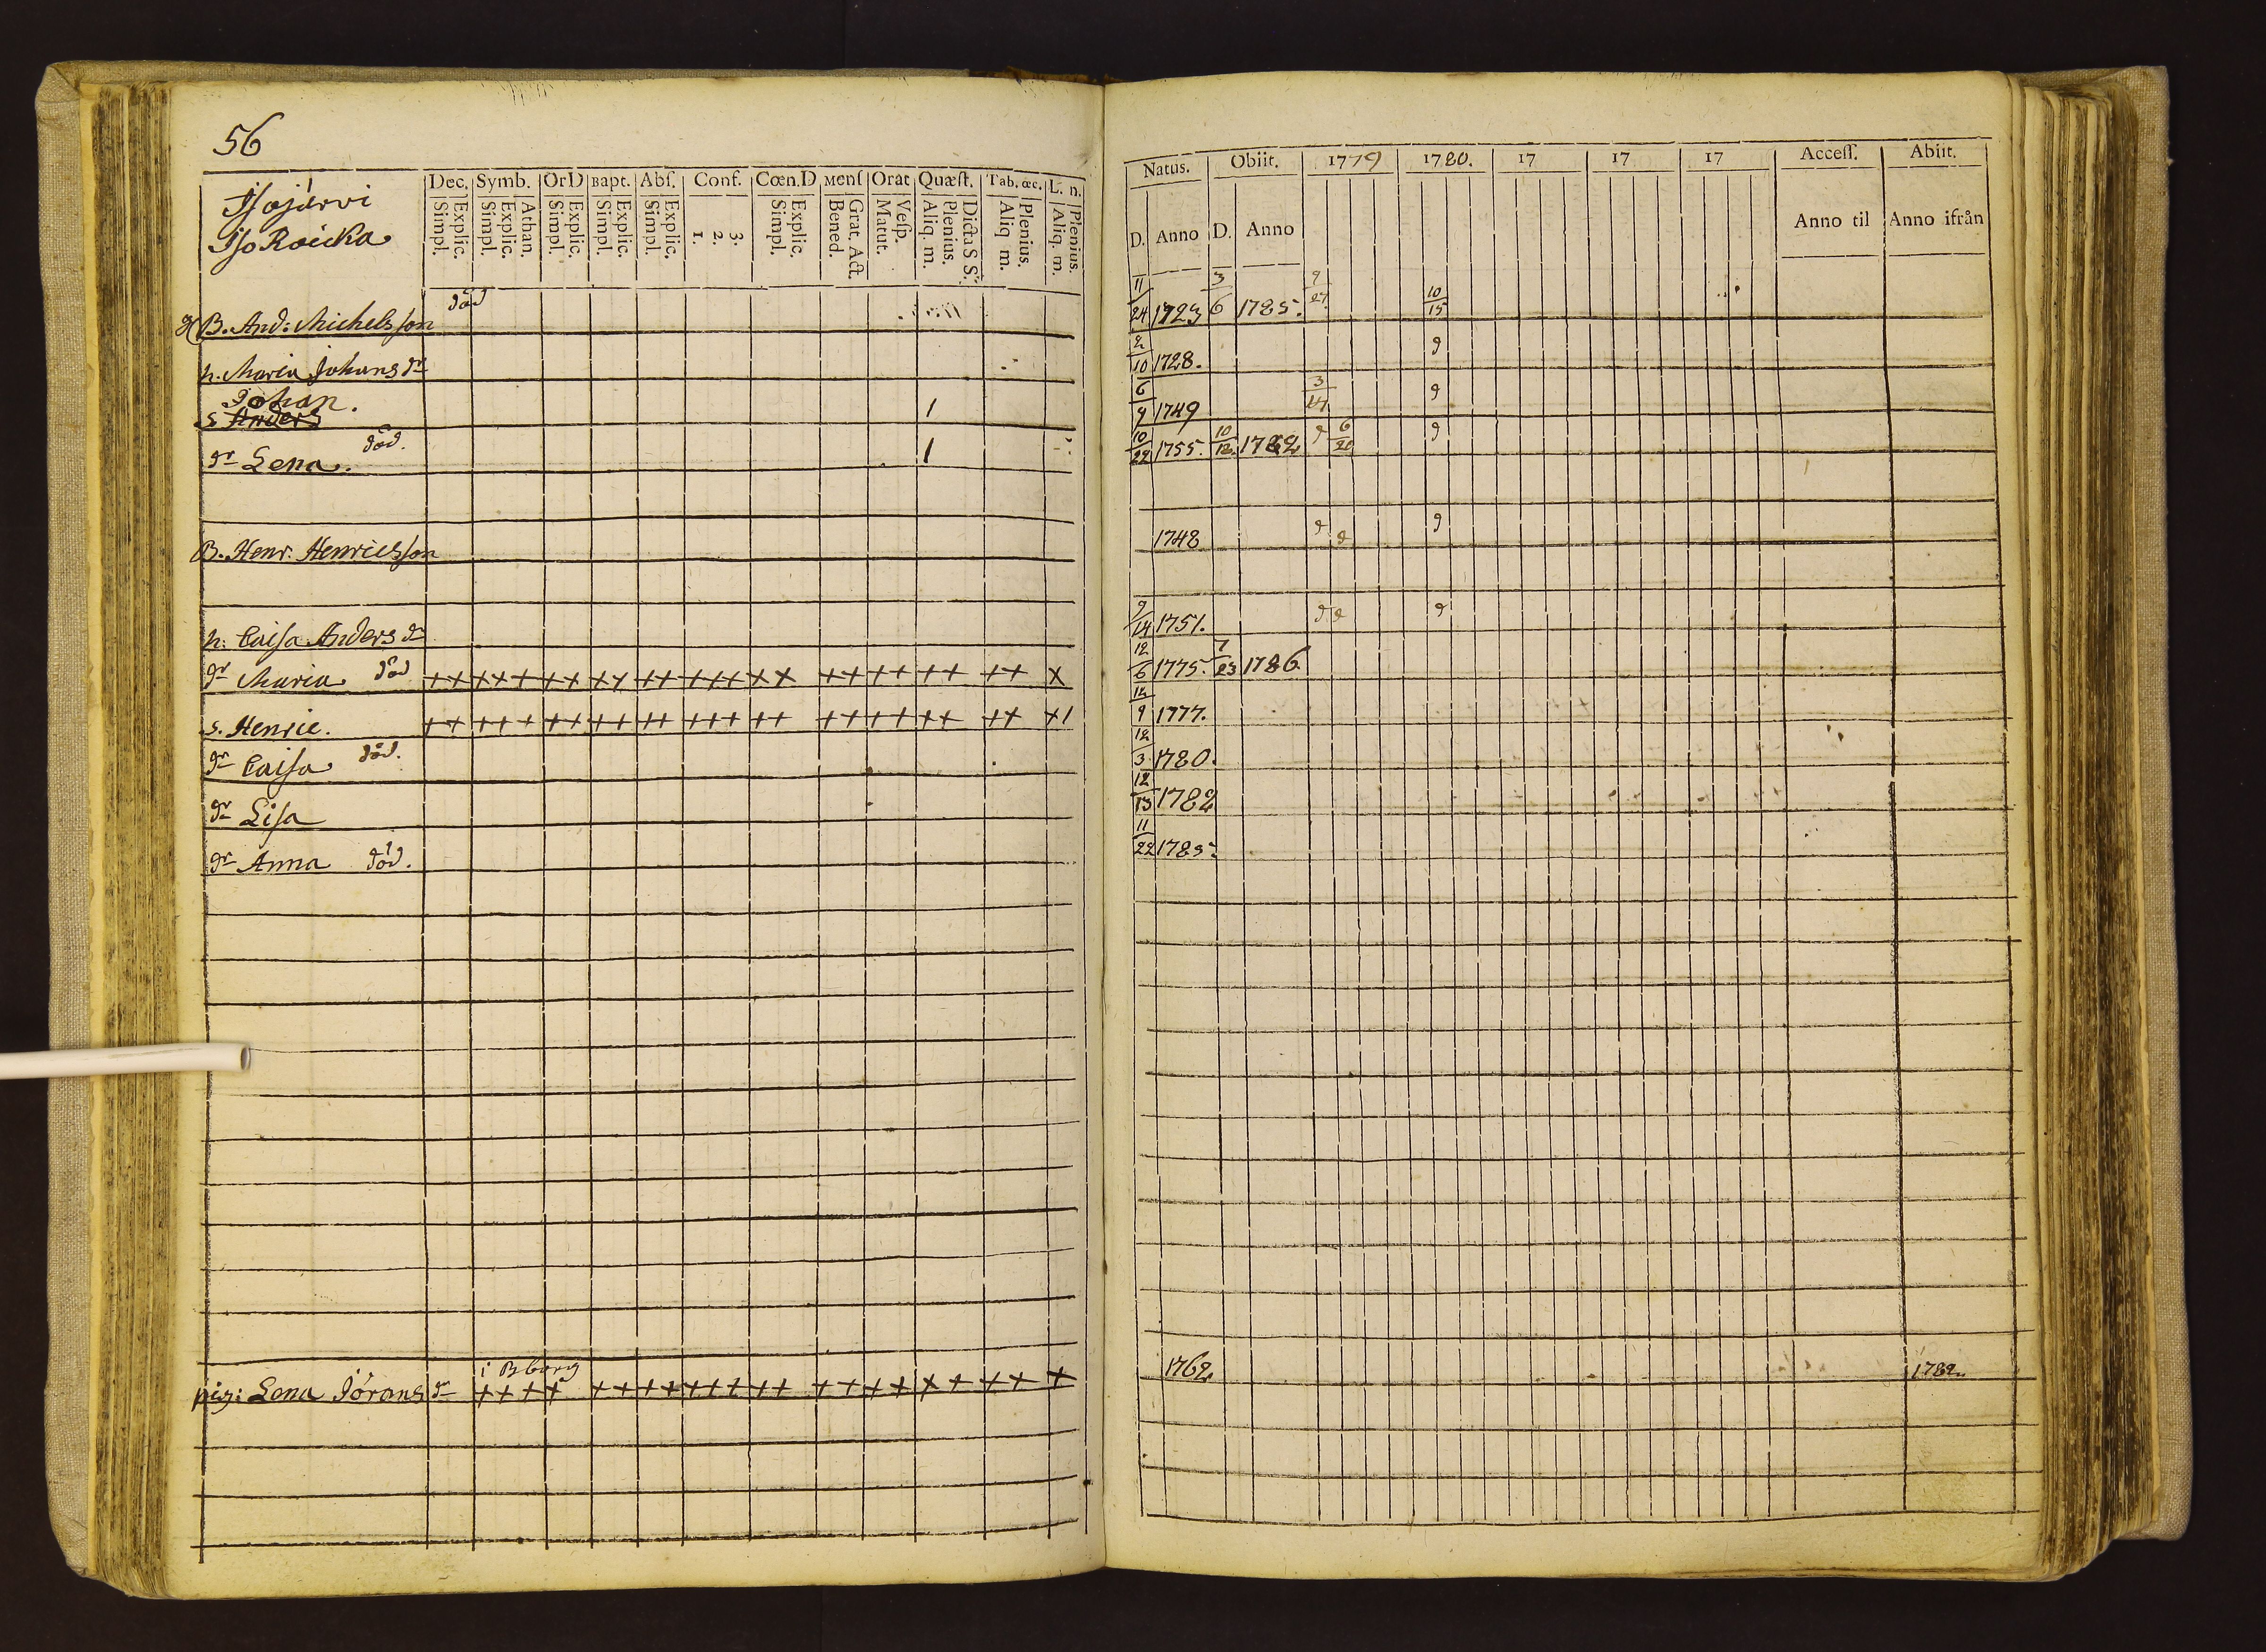 56
Isojärvi
Iso Roicka
Dec. Symb. Or D Bapt. Abſ. Conf. Cœn. D Menſ Orat Quæſt. Tab. œc. L. n.
Simpl. Explic. Simpl. Explic. Athan. Simpl. Explic. Simpl. Explic. Simpl. Explic. 1. 2. 3. Simpl. Explic. Bened. Grat. Act. Matut. Veſp. Aliq. m. Plenius. Dicta S S. Aliq. m. Plenius. Aliq. m. Plenius.
Natus. Obiit. 1779 1780. 17 17 17 Acceſſ. Abiit.
D. Anno D. Anno Anno til Anno ifrån
B. And: Michelsson död 11/24 1723 3/6 1785. 9/27 10/15
h. Maria Johans dr 2/10 1728. 9
Johan.
s Anders 1 6/9 1749 3/14 9
dr Lena. död. 1 10/22 1755. 10/12 1782 9 6/20 9
B. Henr. Henricsson 1748 9 9 9
h: Caisa Anders dr 9/14 1751. 9 9 9
dr Maria död ++ +++ ++ ++ ++ +++ ++ ++ ++ ++ ++ + 12/6 1775. 7/23 1786
s. Henric. ++ +++ ++ ++ ++ +++ ++ ++ ++ ++ ++ +1 12/9 1777.
dr Caisa död. 12/3 1780.
dr Lisa 12/13 1782
dr Anna död. 11/22 1785.
i Bborg
pig: Lena Jörans dr ++++ ++ ++ +++ ++ ++ ++ ++ ++ + 1762 1782